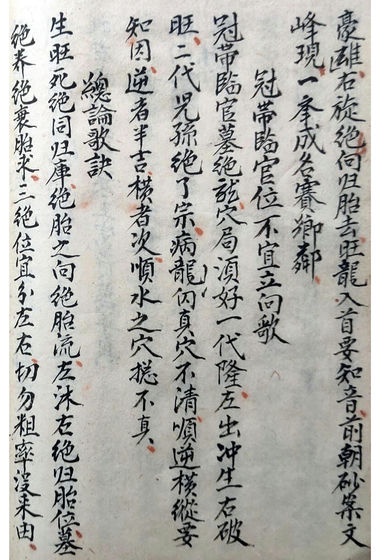 豪雄右旋絶向归胎去旺龍入首要知音前朝砂案文
峰現一举成名賽鄉鄰
冠帶臨官位不宜立向歌
冠帶臨官墓絶龍穴局須好一代隆左出冲生右破
旺二代児孫絶了宗病龍闪真穴不清順逆横縱要
知因逆者半吉横者次順水之穴摠不真
總論歌訣
生旺死絶同归庫絶胎之向絶胎流左沐右絶归胎位墓
絶养绝衰胎求三絶位宜分左右切勿粗率没来由